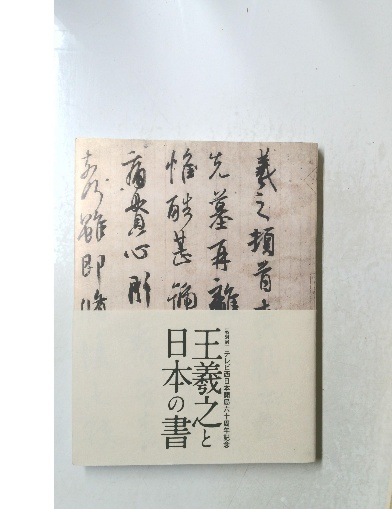 羲之頓首
先墓再離
惟酷甚號
痛貫心肝
奈何雖即脩
特別展 テレビ西日本開局六十周年記念
王羲之と
日本の書